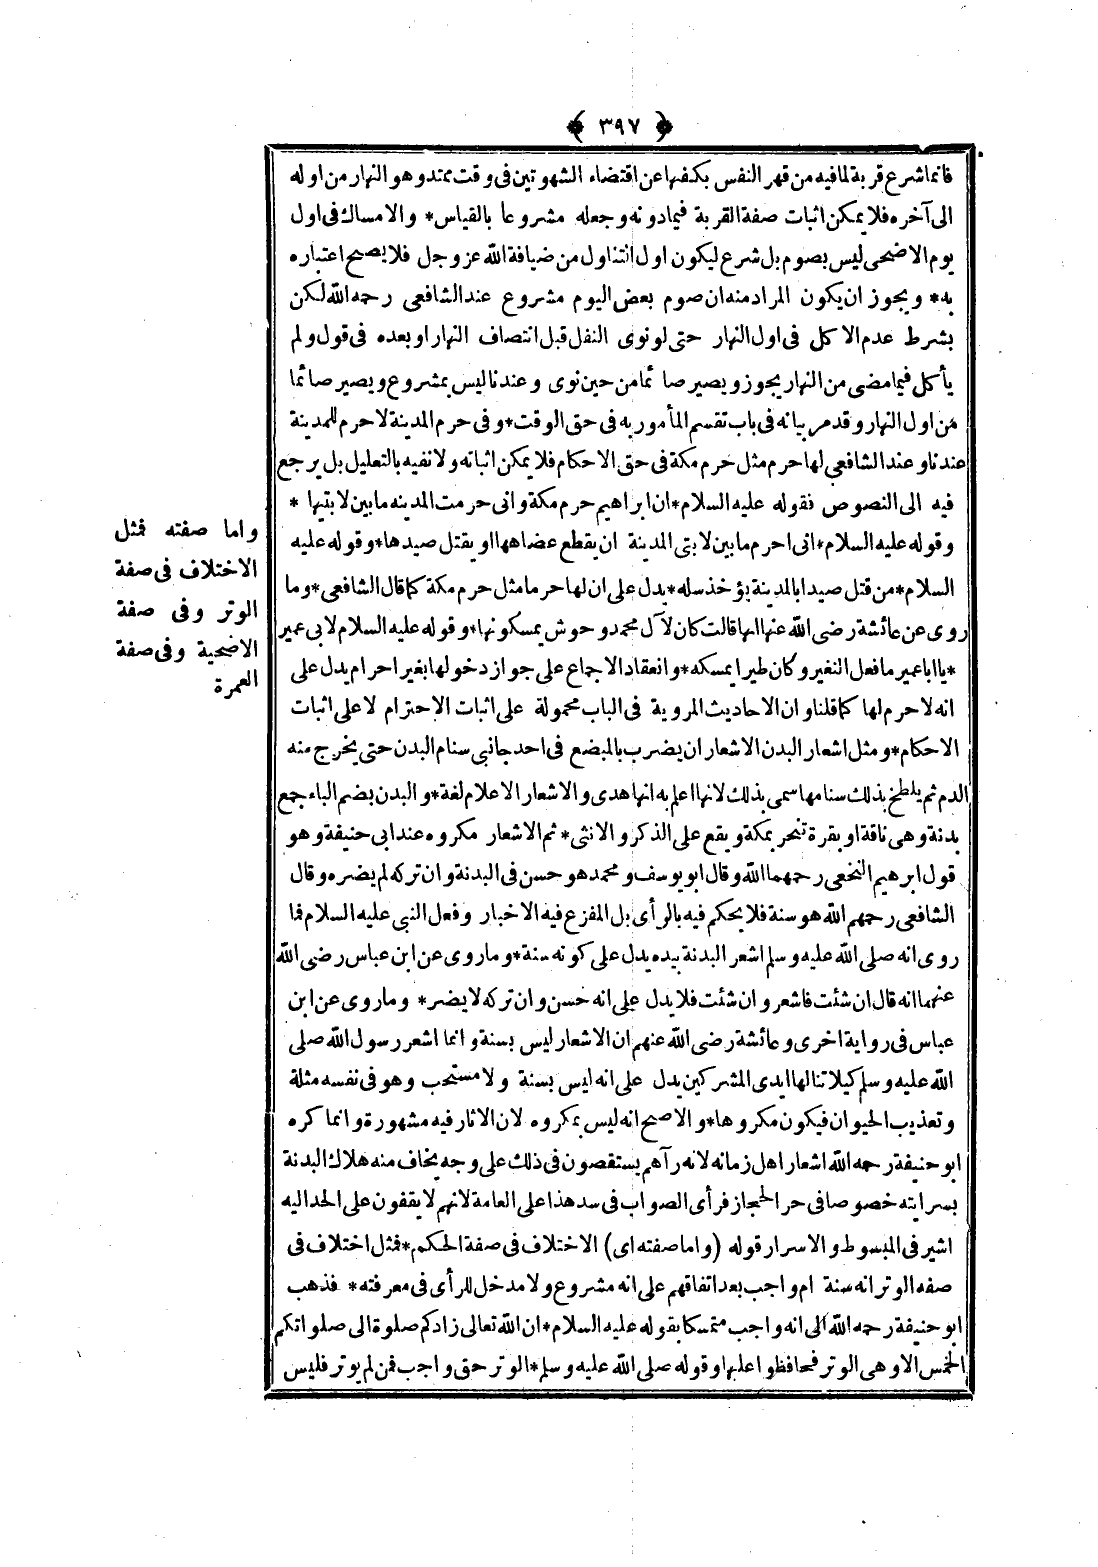 ﴿ ٣٩٧ ﴾
فانما شرع قربة لما فيه من قهر النفس بكفها عن اقتضاء الشهوتين فى وقت ممتد وهو النهار من اوله
الى آخره فلا يمكن اثبات صفة القربة فيما دونه وجعله مشروعا بالقياس* والامساك فى اول
يوم الاضحى ليس بصوم بل شرع ليكون اول التناول من ضيافة الله عز وجل فلا يصح اعتباره
به* ويجوز ان يكون المراد منه ان صوم بعض اليوم مشروع عند الشافعى رحمه الله لكن
بشرط عدم الاكل فى اول النهار حتى لو نوى النفل قبل انتصاف النهار او بعده فى قول ولم
يأكل فيما مضى من النهار يجوز ويصير صائما من حين نوى وعندنا ليس بمشروع ويصير صائما
من اول النهار وقد مر بيانه فى باب تقسم المأمور به فى حق الوقت* وفى حرم المدينة لا حرم للمدينة
عندنا وعند الشافعى لها حرم مثل حرم مكة فى حق الاحكام فلا يمكن اثباته ولا نفيه بالتعليل بل يرجع
فيه الى النصوص فقوله عليه السلام* ان ابراهيم حرم مكة وانى حرمت المدينه ما بين لابتيها *
وقوله عليه السلام* انى احرم ما بين لابتى المدينة ان يقطع عضاهها او يقتل صيدها* وقوله عليه
السلام* من قتل صيدا بالمدينة يؤخذ سلبه* يدل على ان لها حرما مثل حرم مكة كما قال الشافعى* وما
روى عن عائشة رضى الله عنها انها قالت كان لآل محمد وحوش يمسكونها* وقوله عليه السلام لابى عمير
* يا ابا عمير ما فعل النغير وكان طيرا يمسكه* وانعقاد الاجماع على جواز دخولها بغير احرام يدل على
انه لا حرم لها كما قلنا وان الاحاديث المروية فى الباب محمولة على اثبات الاحترام لا على اثبات
الاحكام* ومثل اشعار البدن الاشعار ان يضرب بالمبضع فى احد جانبى سنام البدن حتى يخرج منه
الدم ثم يلطخ بذلك سنامها سمى بذلك لانها اعلم به انها هدى والاشعار الاعلام لغة* والبدن بضم الباء جمع
بدنة وهى ناقة او بقرة تنحر بمكة ويقع على الذكر والانثى* ثم الاشعار مكروه عند ابى حنيفة وهو
قول ابرهيم النخعى رحمهما الله وقال ابو يوسف ومحمد هو حسن فى البدنة وان تركه لم يضره وقال
الشافعى رحمهم الله هو سنة فلا يحكم فيه بالرأى بل المفزع فيه الاخبار وفعل النبى عليه السلام فما
روى انه صلى الله عليه وسلم اشعر البدنة بيده يدل على كونه سنة* وما روى عن ابن عباس رضى الله
عنهما انه قال ان شئت فاشعر وان شئت فلا يدل على انه حسن وان تركه لا يضر* وما روى عن ابن
عباس فى رواية اخرى وعائشة رضى الله عنهم ان الاشعار ليس بسنة وانما اشعر رسول الله صلى
الله عليه وسلم كيلا تنالها ايدى المشركين يدل على انه ليس بسنة ولا مستحب وهو فى نفسه مثلة
وتعذيب الحيوان فيكون مكروها* والاصح انه ليس بمكروه لان الاثار فيه مشهورة وانما كره
ابو حنيفة رحمه الله اشعار اهل زمانه لانه رآهم يستقصون فى ذلك على وجه يخاف منه هلاك البدنة
بسرايته خصوصا فى حر الحجاز فرأى الصواب فى سد هذا على العامة لانهم لا يقفون على الحد اليه
اشير فى المبسوط والاسرار قوله (واما صفته اى) الاختلاف فى صفة الحكم* فمثل اختلاف فى
صفه الوتر انه سنة ام واجب بعد اتفاقهم على انه مشروع ولا مدخل للرأى فى معرفته* فذهب
ابو حنيفة رحمه الله الى انه واجب متمسكا بقوله عليه السلام* ان الله تعالى زادكم صلوة الى صلواتكم
الخمس الا وهى الوتر فحافظوا عليها وقوله صلى الله عليه وسلم* الوتر حق واجب فمن لم يوتر فليس
واما صفته فمثل
الاختلاف فى صفة
الوتر وفى صفة
الاضحية وفى صفة
العمرة